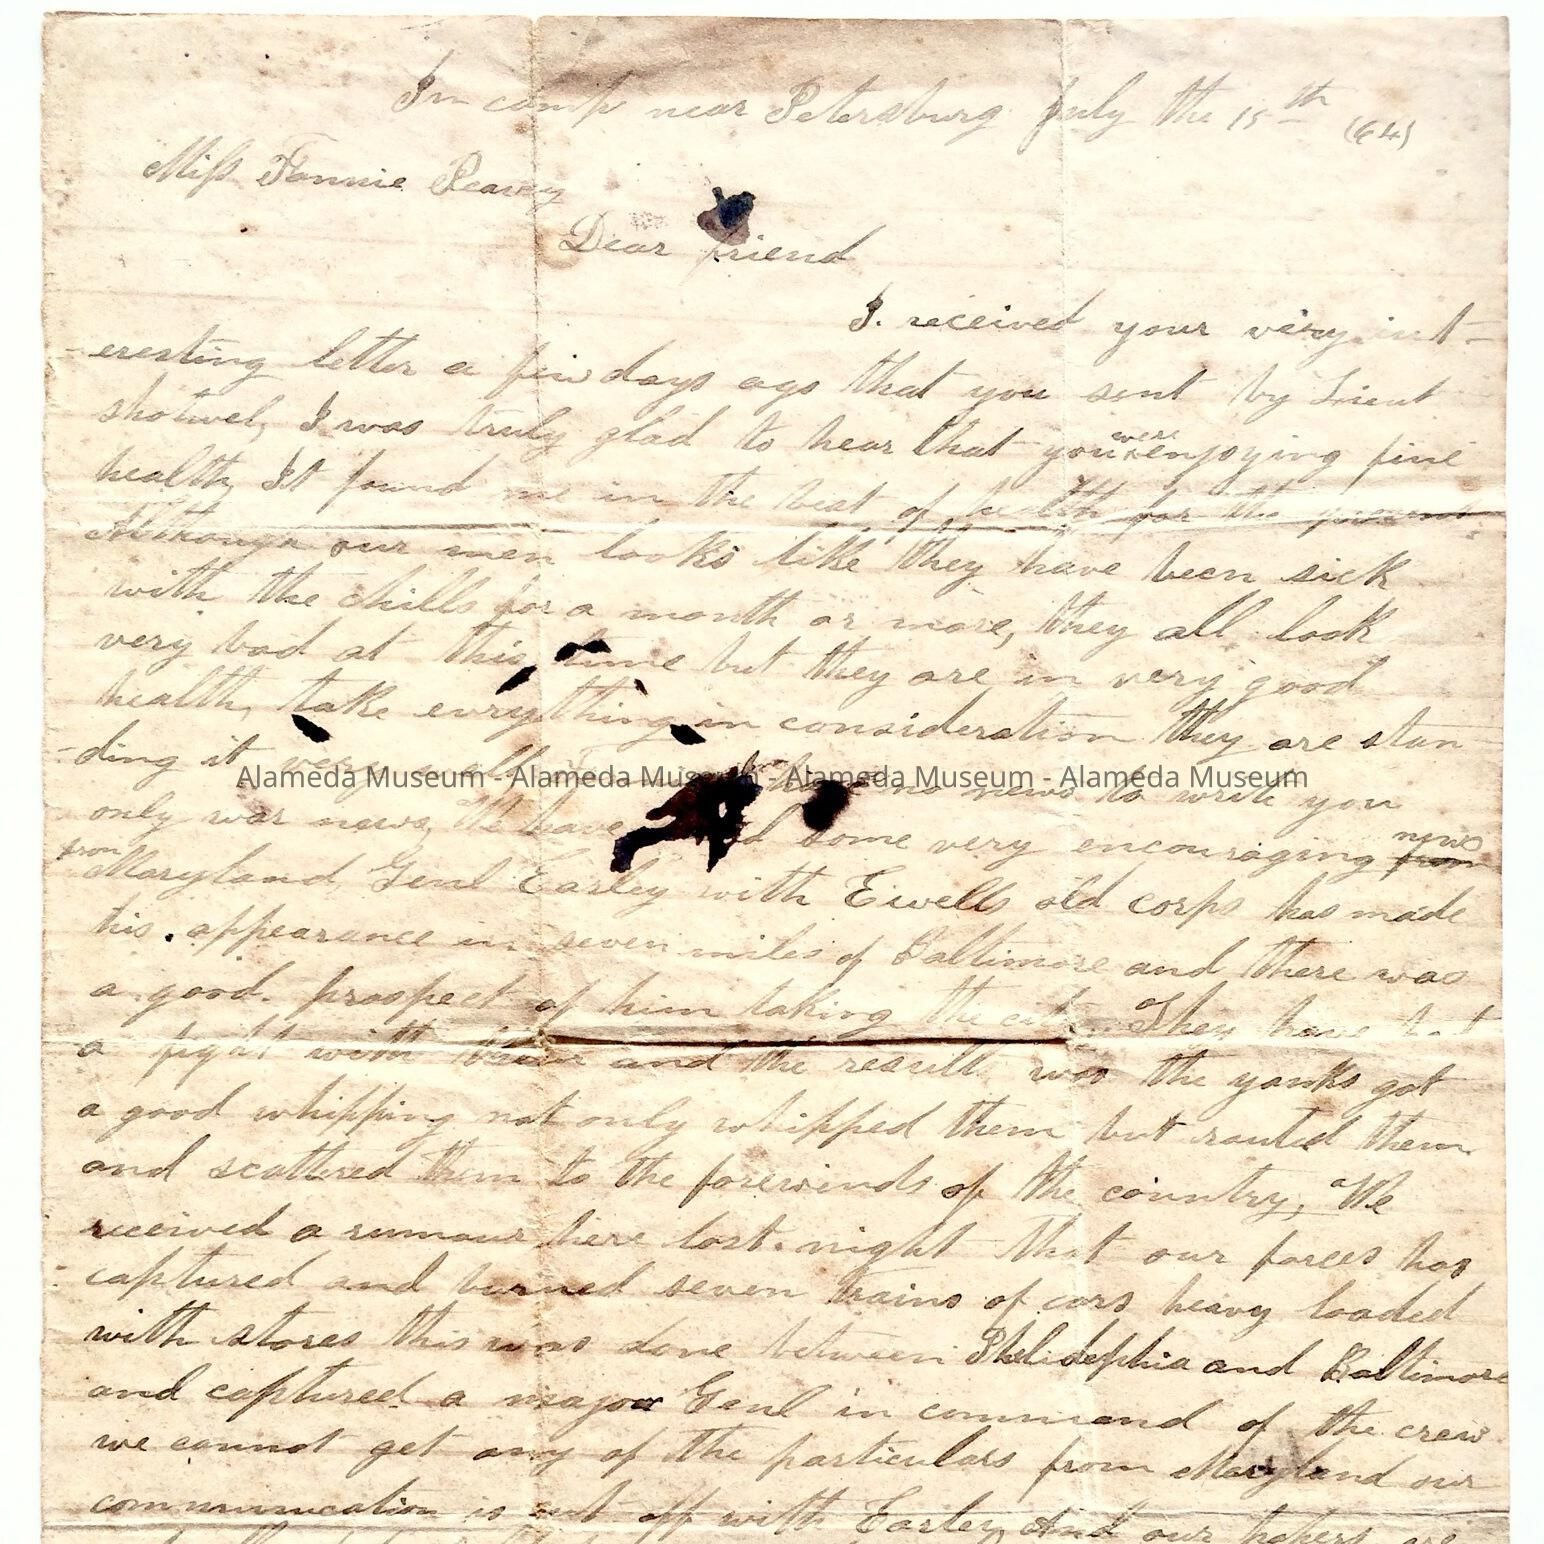 In camp near Petersburg July the 15th (64)
Miss Fannie Peavey
Dear friend
I. received your very int-
eresting letter a few days ago that you sent by Lieut
shotwel, I was truly glad to hear that you were enjoying fine
health, It found me in the best of health for the present
Although our men looks like they have been sick
with the chills for a month or more, they all look
very bad at this time but they are in very good
health, take evrything in consideration they are stan-
-ding it very well no news to write you
only war news, We have some very encouraging news from
from Maryland, Genl Earley with Ewells old corps has made
his. appearance in seven miles of Baltimore and there was
a good. prospect of him taking the city They have had
a fight with and the result was the yanks got
a good whipping not only whipped them but routed them
and scattered them to the forewinds of the country, We
received a rumour here last. night that our forces has
captured and burned seven trains of cars heavy loaded
with stores this was done between Philidephia and Baltimore
and captured a major Genl in command of the crew
we cannot get any of the particulars from Maryland our
communication is cut off with Earley And our papers are
Alameda Museum - Alameda Museum - Alameda Museum - Alameda Museum